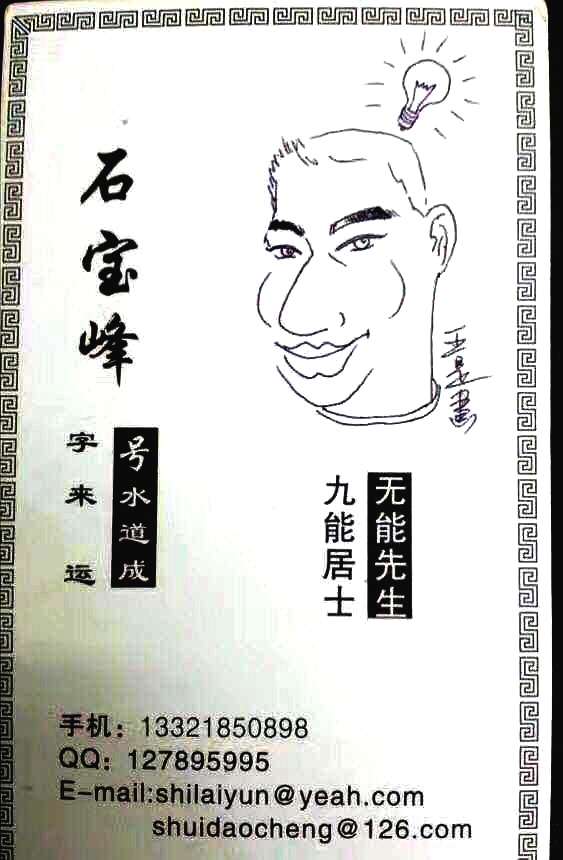 石宝峰
字来运
号水道成
无能先生
九能居士
手机：13321850898
QQ：127895995
E-mail:shilaiyun@yeah.com
shuidaocheng@126.com